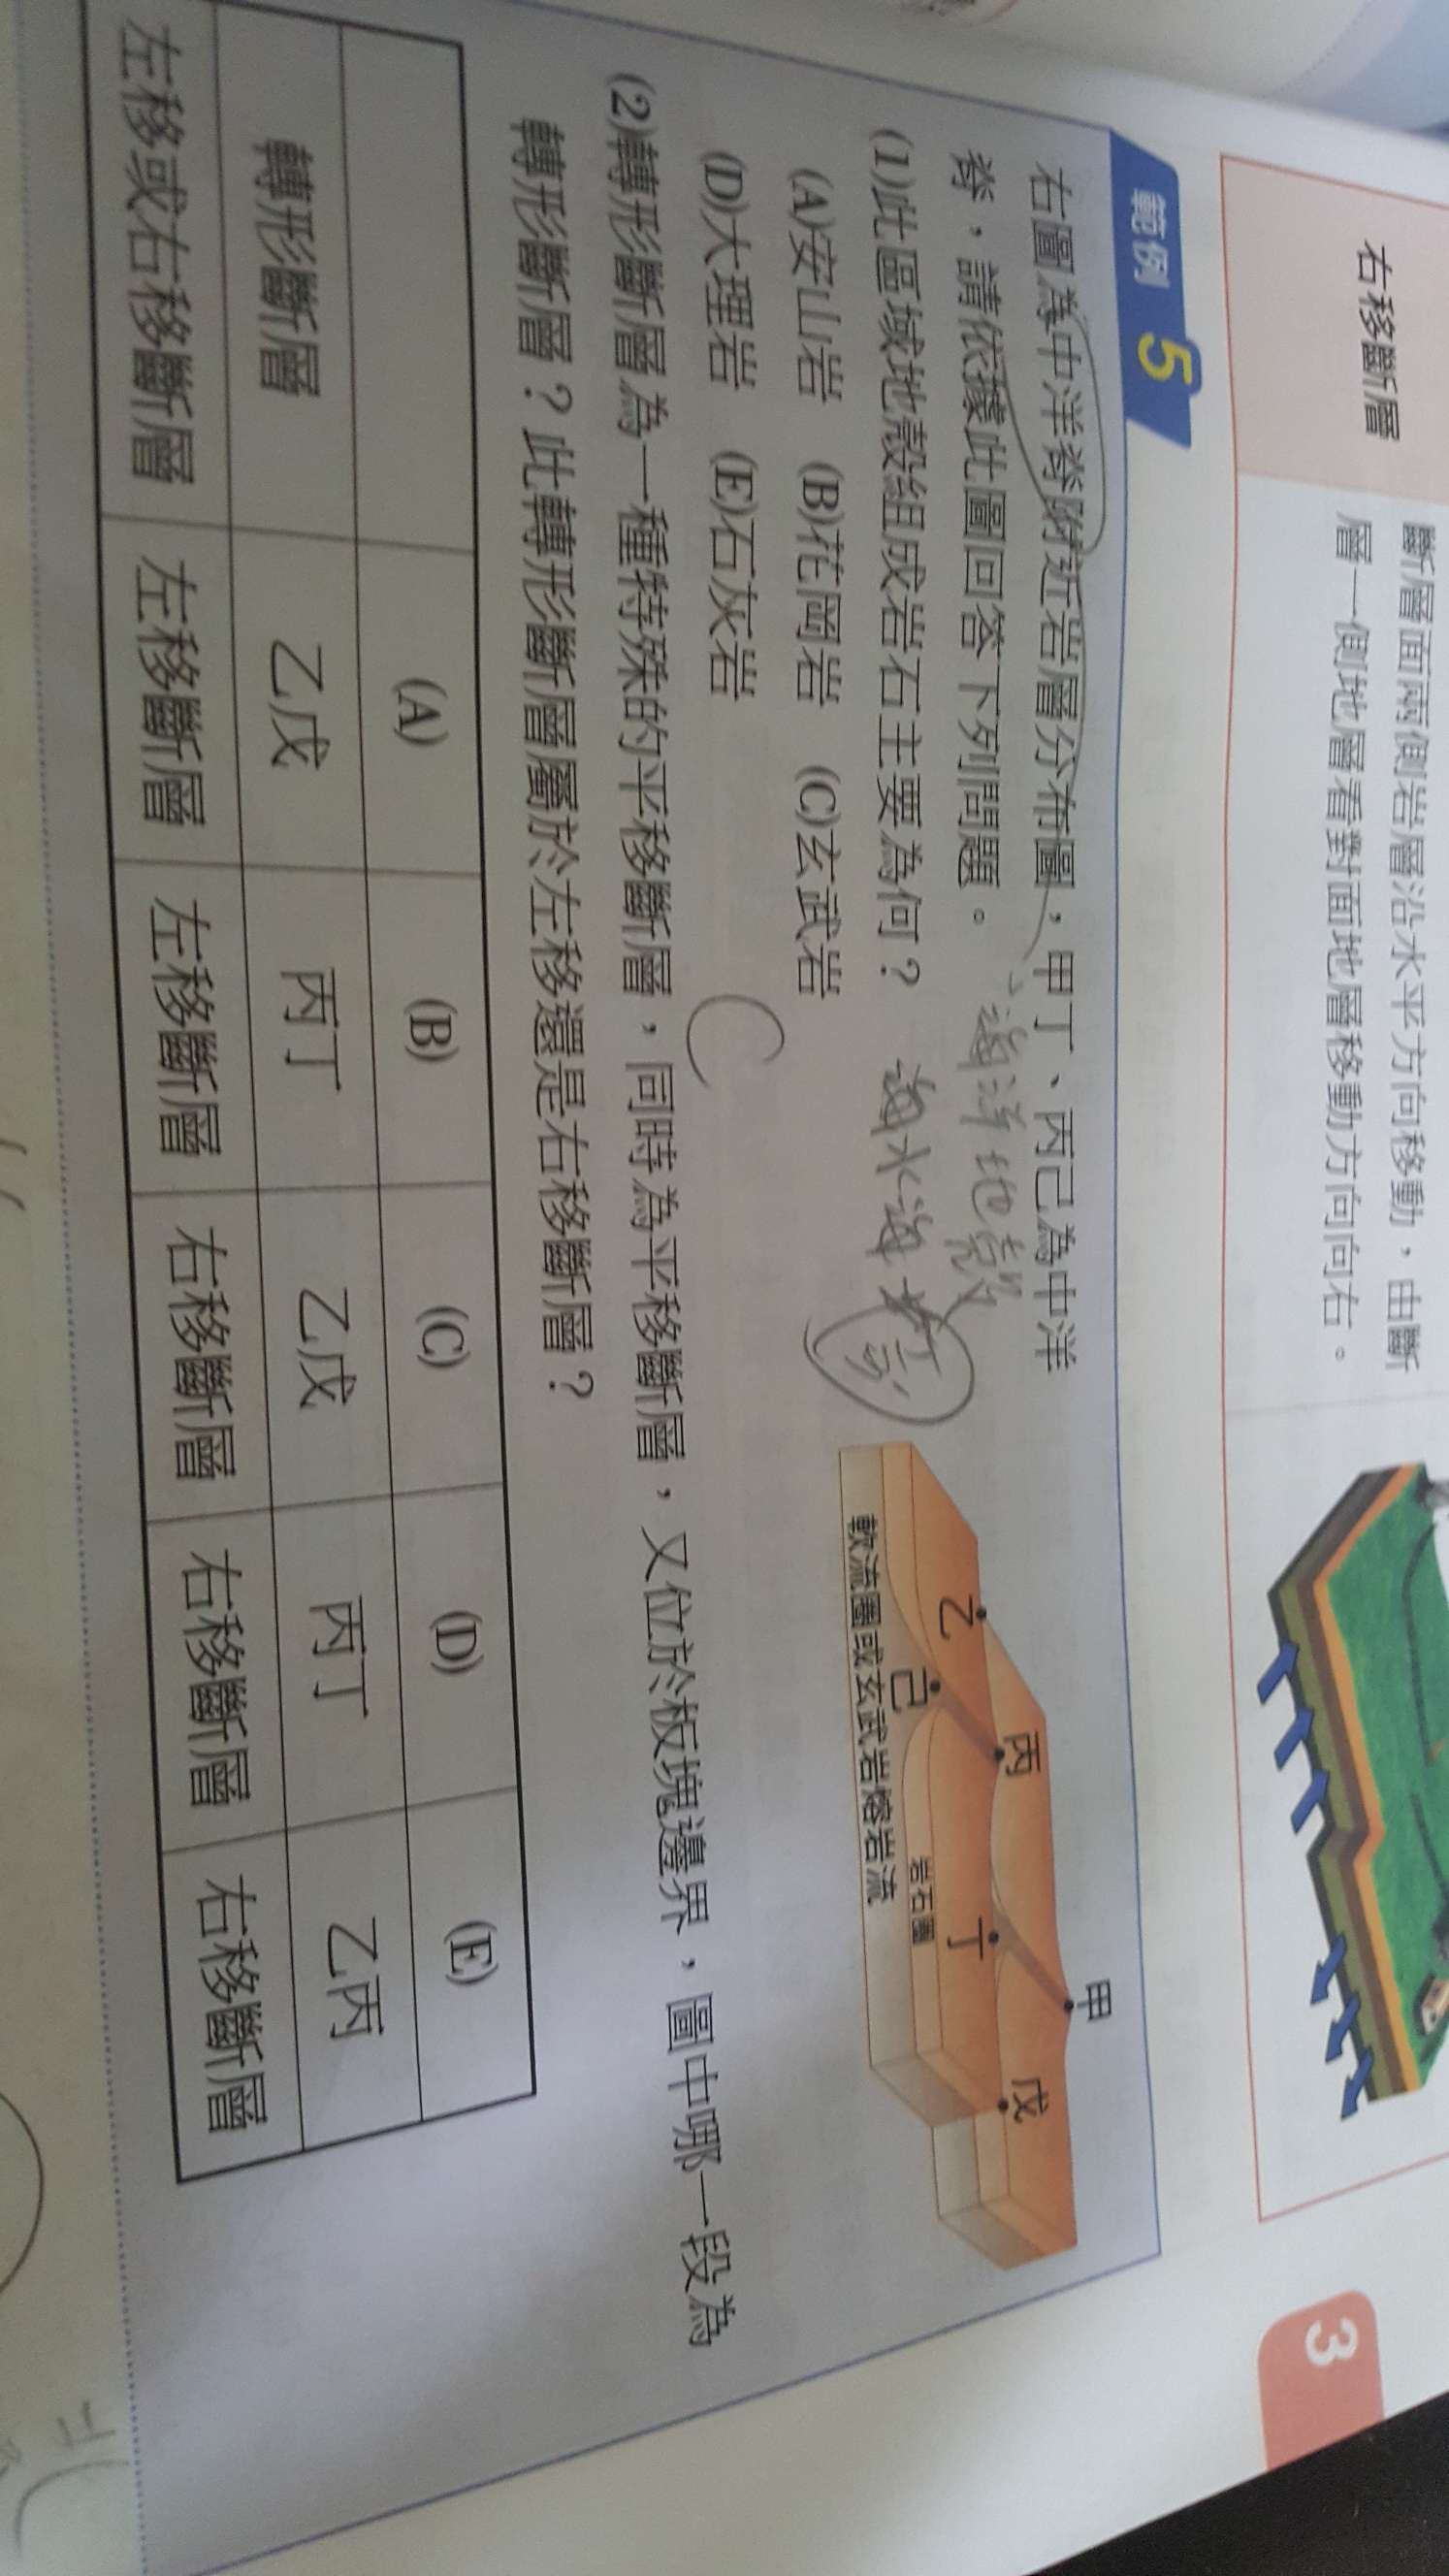 右移斷層
斷層面兩側岩層沿水平方向移動，由斷
層一側地層看對面地層移動方向向右。
3
範例 5
右圖為中洋脊附近岩層分布圖，甲丁、丙己為中洋
脊，請依據此圖回答下列問題。
海洋地殼
(1)此區域地殼組成岩石主要為何？
(A)安山岩 (B)花岡岩 (C)玄武岩
(D)大理岩 (E)石灰岩
C
甲
乙
丙
丁
戊
己
岩石圈
軟流圈或玄武岩熔岩流
(2)轉形斷層為一種特殊的平移斷層，同時為平移斷層，又位於板塊邊界，圖中哪一段為
轉形斷層？此轉形斷層屬於左移還是右移斷層？
(A) (B) (C) (D) (E)
轉形斷層 乙戊 丙丁 乙戊 丙丁 乙丙
左移或右移斷層 左移斷層 左移斷層 右移斷層 右移斷層 右移斷層